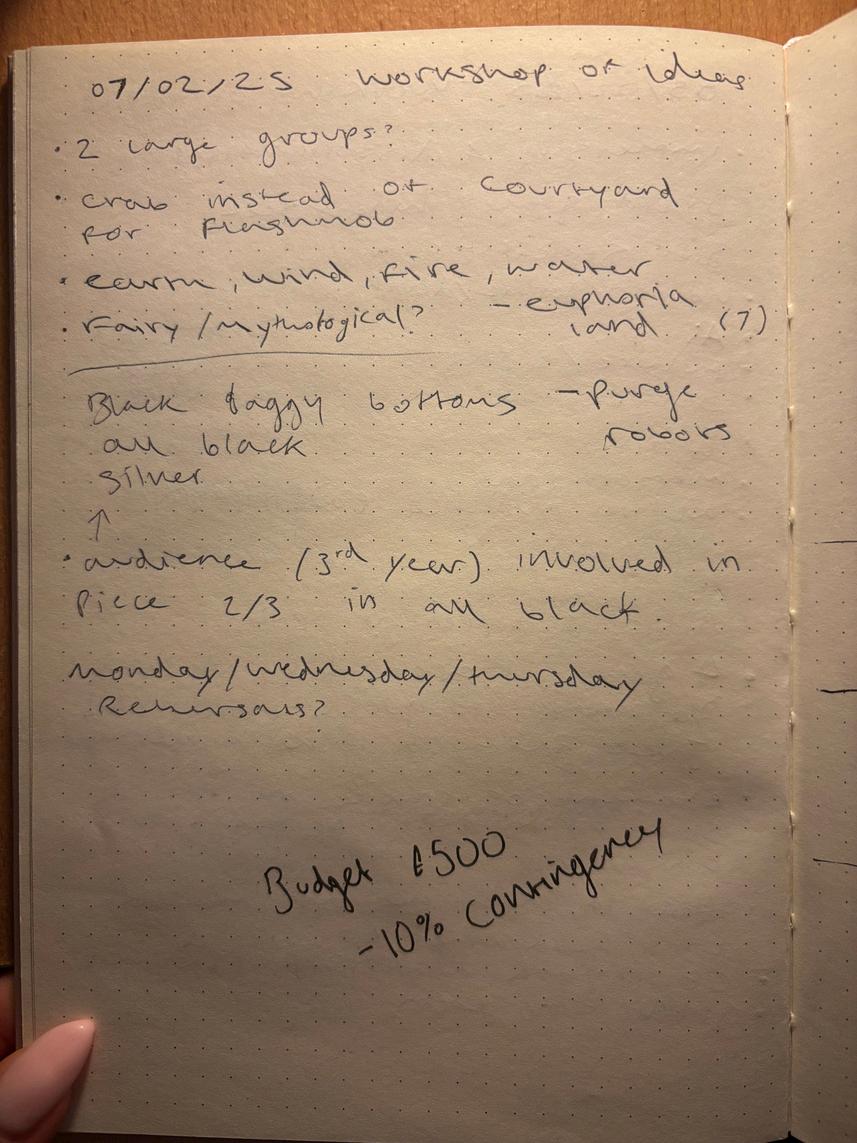 07/02/25 Workshop of ideas
• 2 large groups?
• crab instead of courtyard
for flashmob
• earth, wind, fire, water
• Fairy/Mythological? - euphoria
land (7)
Black baggy bottoms - purge
all black robots
silver
↑
• audience (3rd year) involved in
Piece 2/3 in all black.
Monday/Wednesday/Thursday
Rehersals?
Budget £500
-10% Contingency